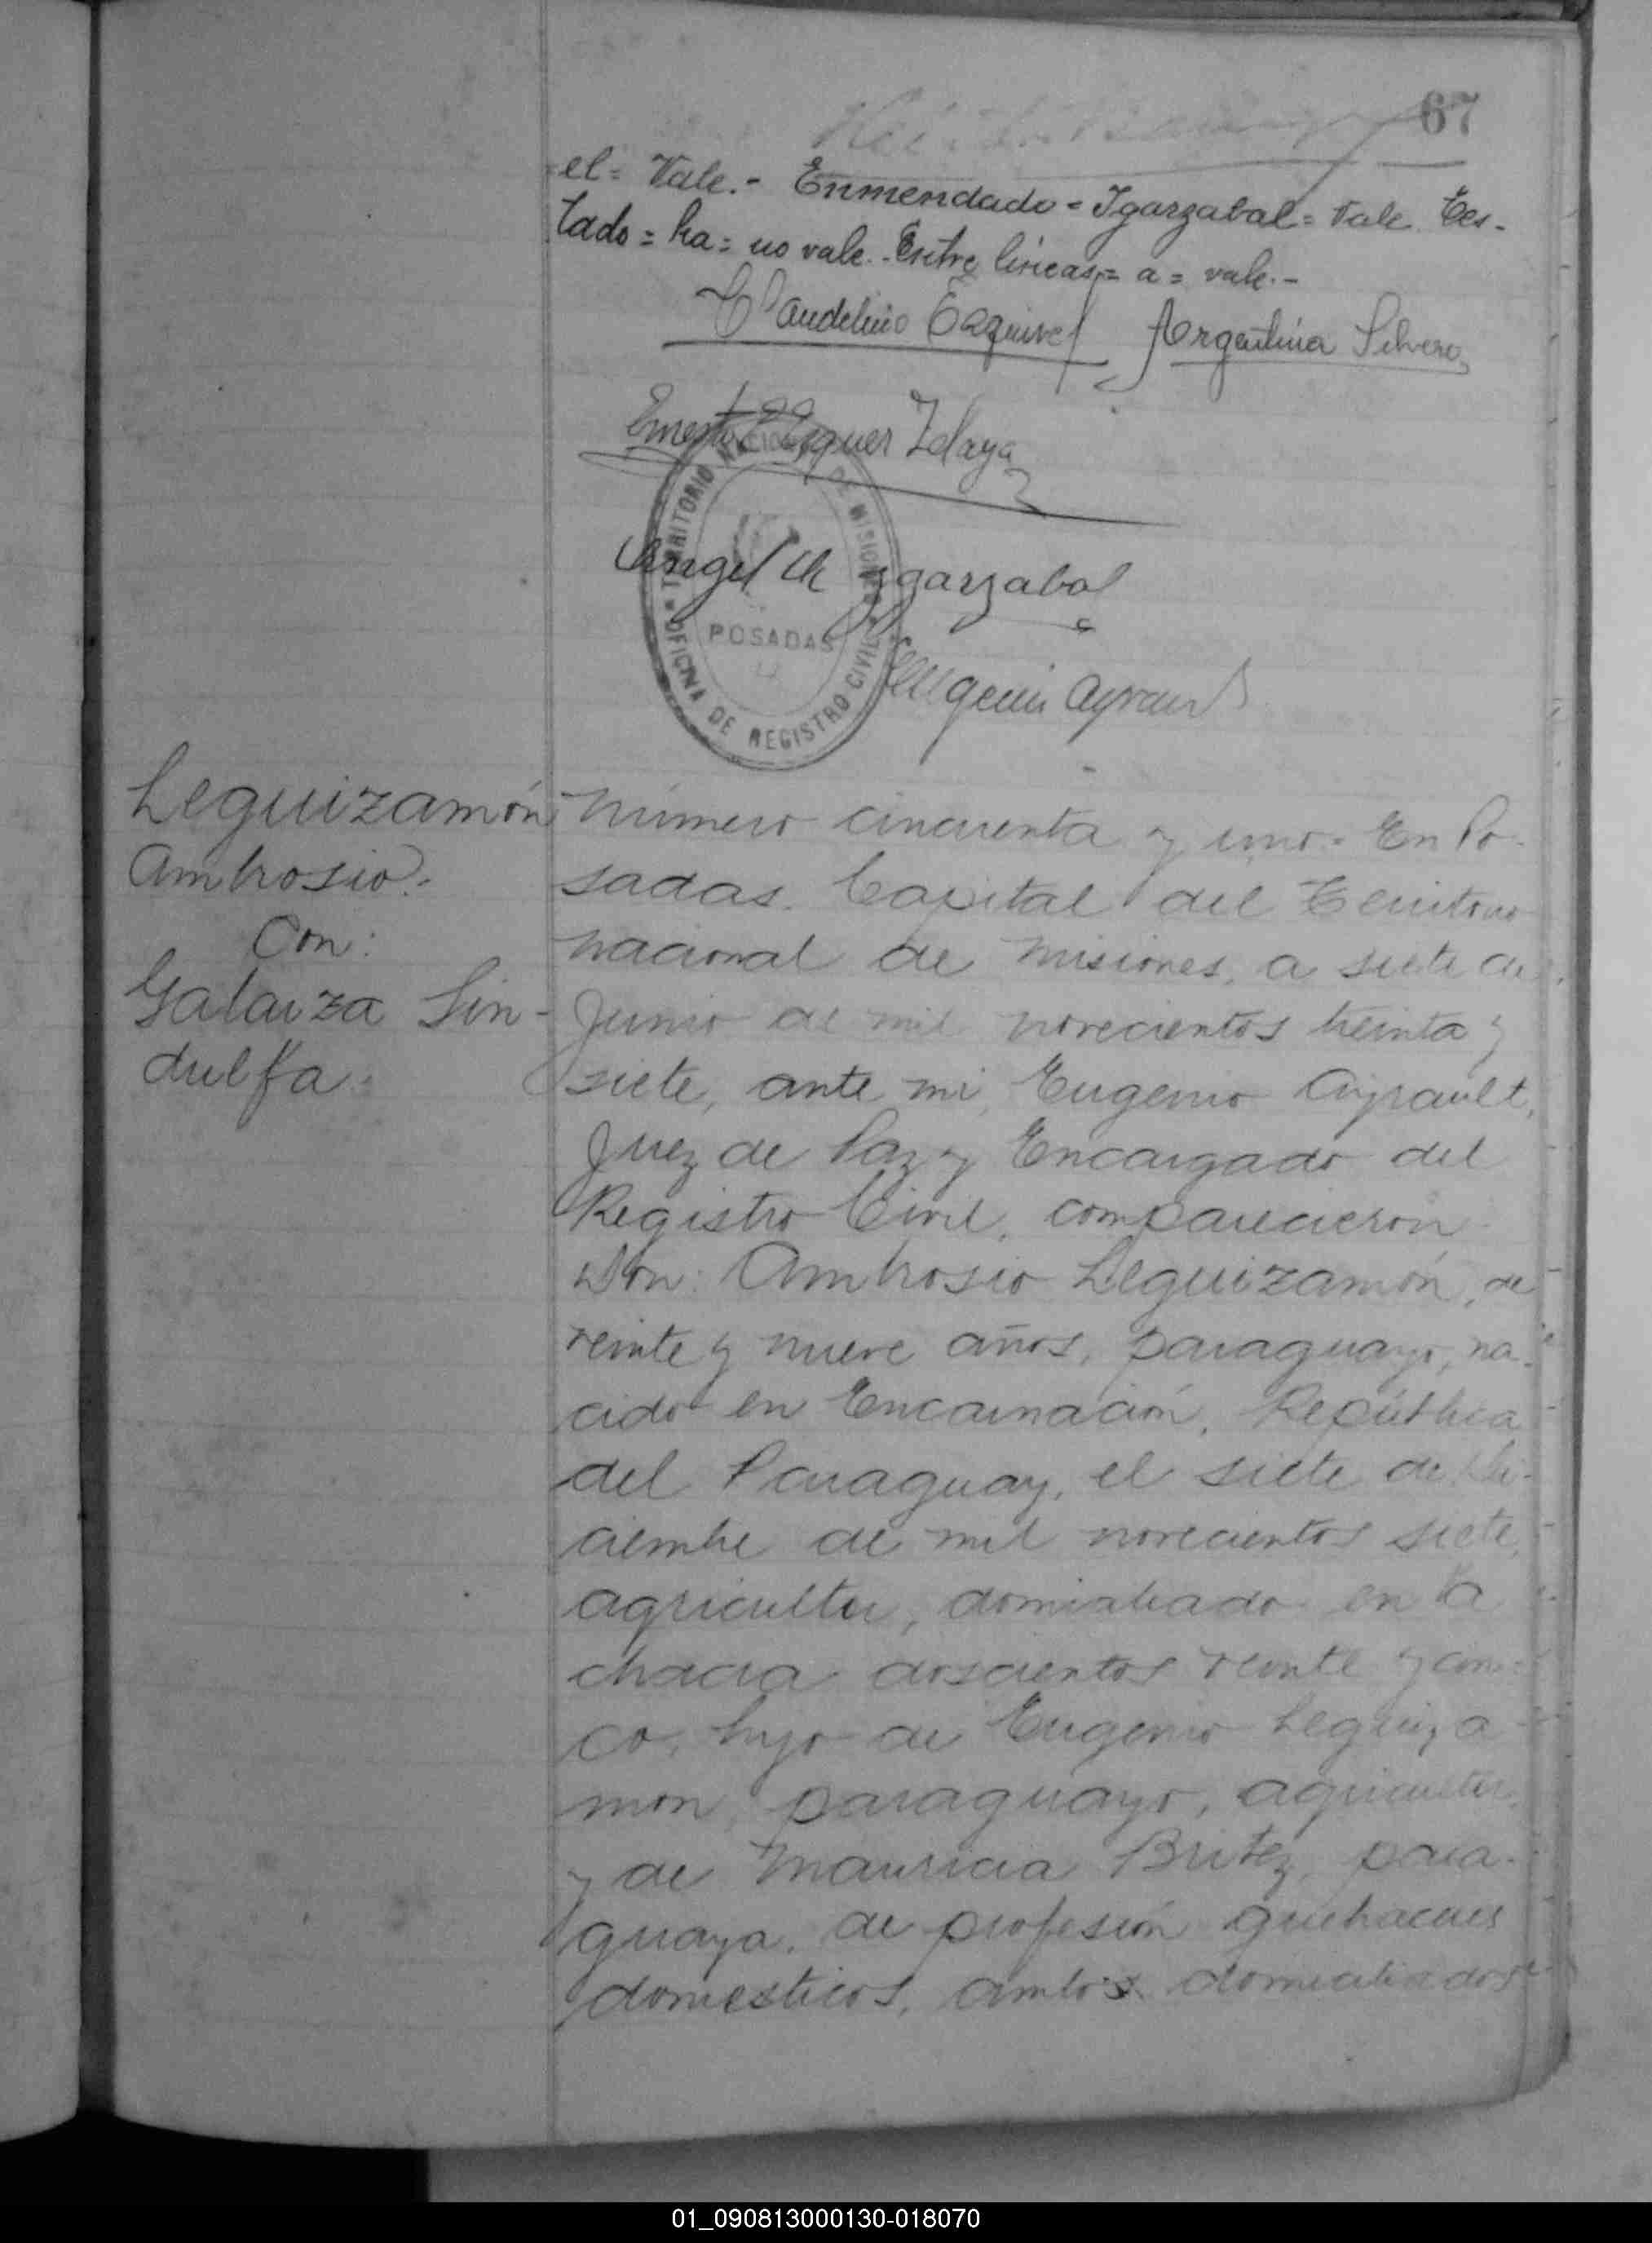 67
el = Vale.- Enmendado = Igarzabal = Vale. Tes-
tado = ha = no vale.- Entre lineas = a = vale.-
Claudelino Esquivel Argentina Silvero
Ernesto Ezquer Zelaya
TERRITORIO NACIONAL DE MISIONES
Angel M Ygarzabal
POSADAS
OFICINA DE REGISTRO CIVIL
Eugenio Ayrault
Leguizamón
Ambrosio.-
Con:
Galarza Sin-
dulfa.
Número cincuenta y uno.- En Po-
sadas. Capital del Territorio
nacional de Misiones, a siete de
Junio de mil novecientos treinta y
siete, ante mi, Eugenio Ayrault,
Juez de Paz y Encargado del
Registro Civil, comparecieron
Don: Ambrosio Leguizamón, de
veinte y nueve años, paraguayo, na-
cido en Encarnación, República
del Paraguay, el siete de Di-
ciembre de mil novecientos siete,
agricultor, domiciliado en la
chacra doscientos veinte y cin-
co, hijo de Eugenio Leguiza-
mon, paraguayo, agricultor,
y de Mauricia Britez, para-
guaya, de profesión quehaceres
domesticos, ambos domiciliados
01_090813000130-018070